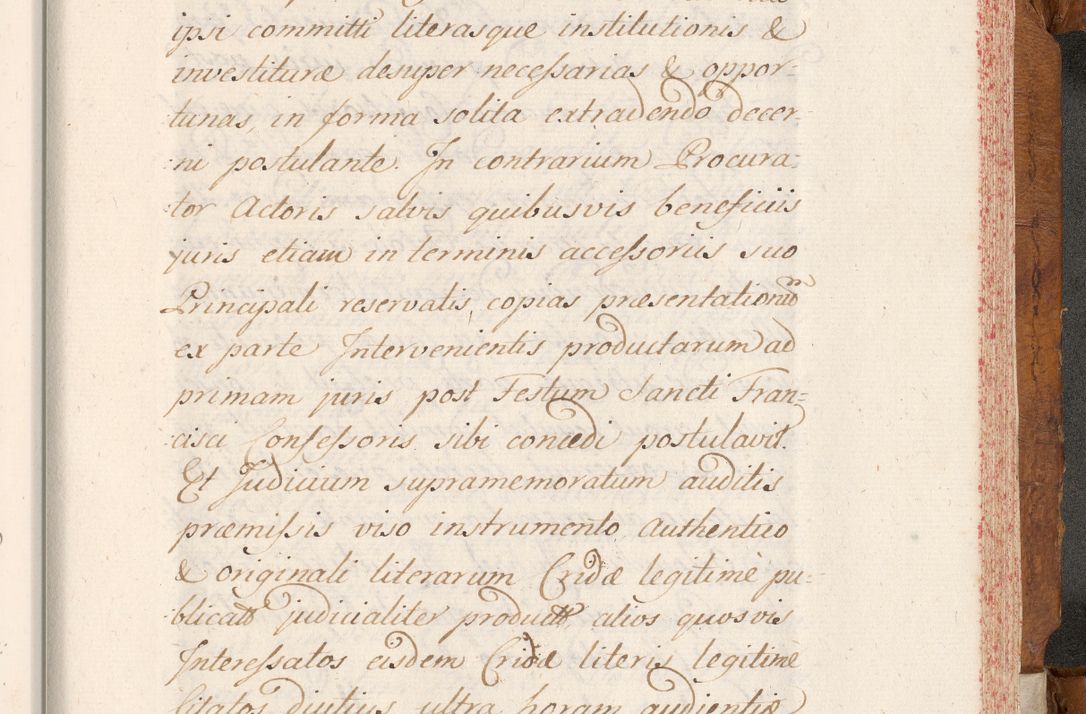 ipsi committi literasque institutionis &
investituræ desuper necessarias & oppor-
tunas, in forma solita extradendo decer-
ni postulante. In contrarium Procura-
tor Actoris salvis quibusvis beneficiis
juris etiam in terminis accessoriis suo
Principali reservatis, copias præsentationum
ex parte Intervenientis productarum ad
primam juris post Festum Sancti Fran-
cisci Confessoris sibi concedi postulavit.
Et Judicium supramemoratum auditis
præmissis viso instrumento authentico
& originali literarum Cridæ legitimè pu-
blicato judicialiter producto, alios quosvis
Interessatos eisdem Cridæ literis legitimè
citatos diutius ultra horam audientiæ